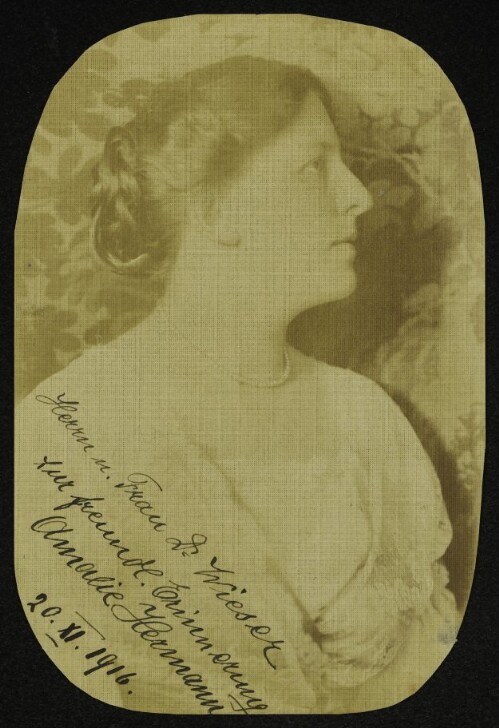 Herrn u. Frau Dr Wieser
zur freundl. Erinnerung
Amalie Hermann
20. XI. 1916.